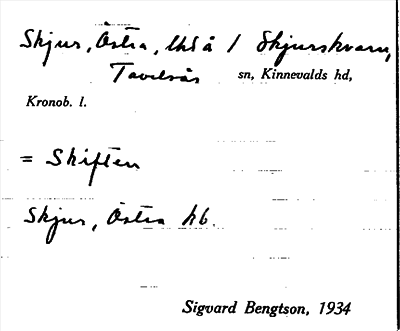 Skjur, Östra, lhs å / Skjurskvarn,
Tavelsås sn, Kinnevalds hd,
Kronob. l.
= Skiften
Skjur, Östra hb.
Sigvard Bengtson, 1934